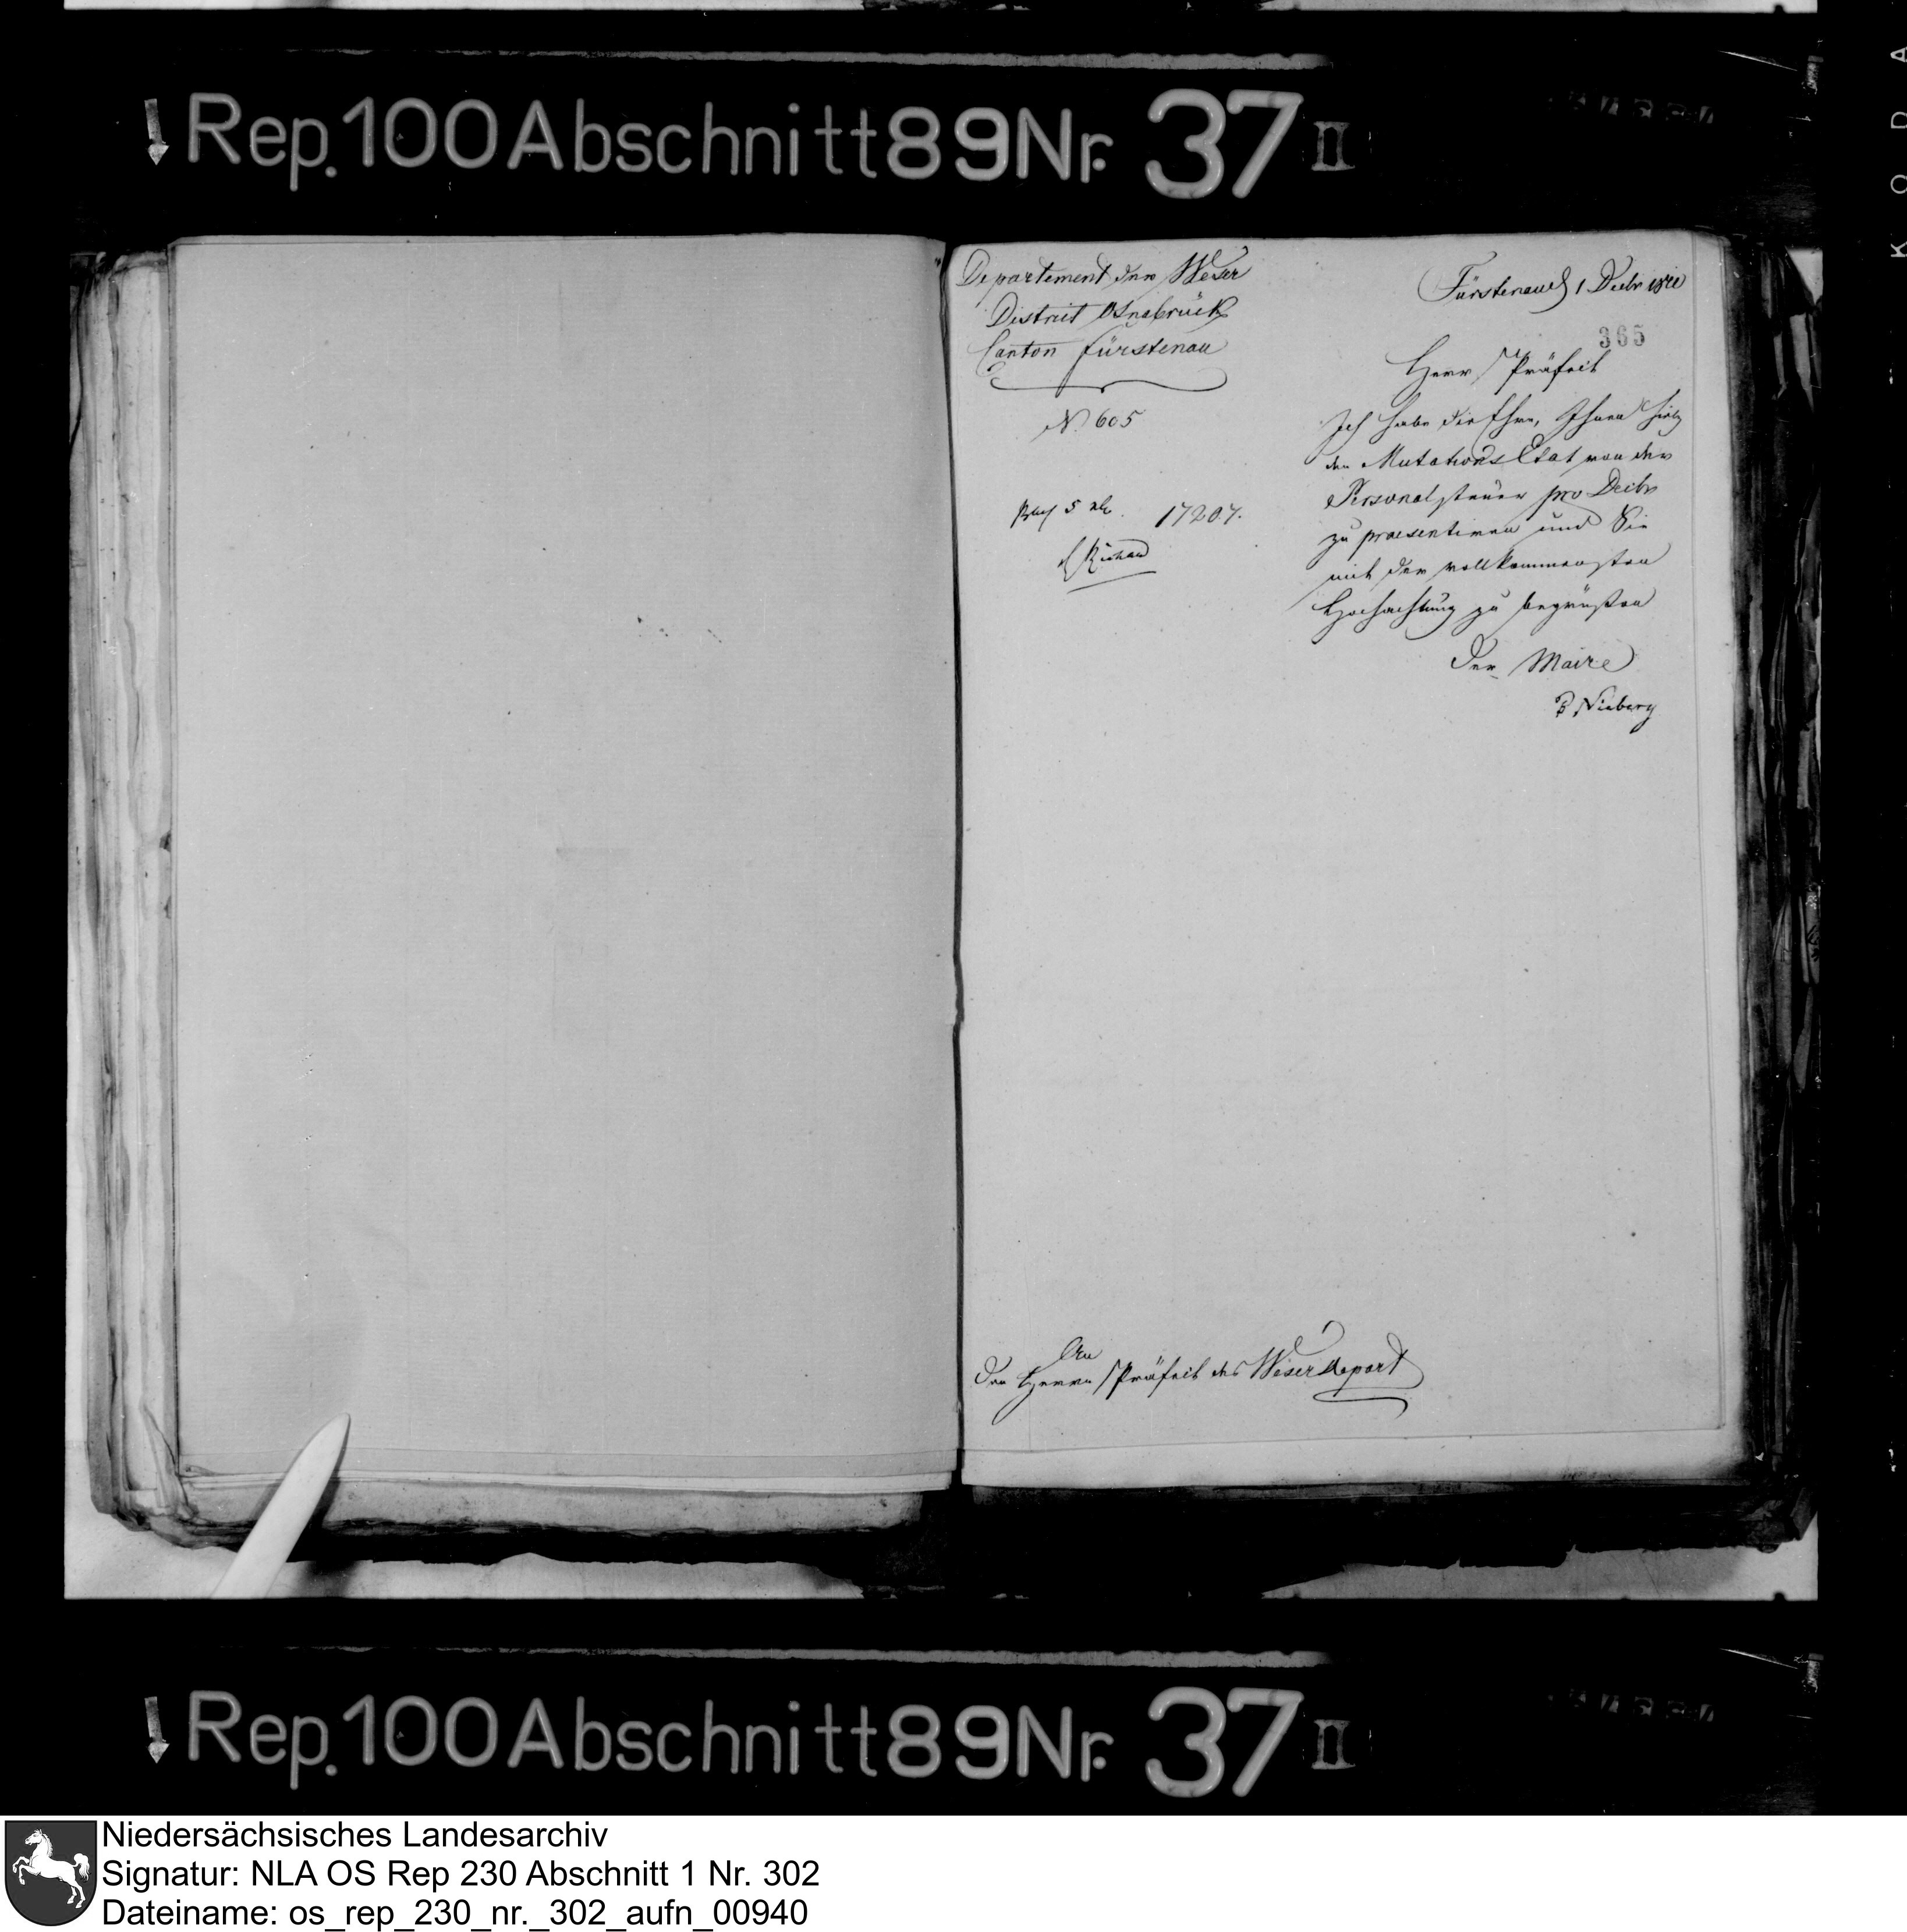 Rep. 100 Abschnitt 89 Nr. 37 II
Departement der Weser
District Osnabrück
Canton Fürstenau
N. 605
17207.
Fürstenau d 1 Decbr
365
Herr Präfect
Ich habe die Ehre, Ihnen
den Mutations Etat von der
Personalsteuer pro Decbr
zu praesentiren und Sie
mit der vollkommensten
Hochachtung zu begrüßen
Der Maire
Nieberg
An
den Herrn Präfect des Weser Depart
KODA
Rep. 100 Abschnitt 89 Nr. 37 II
Niedersächsisches Landesarchiv
Signatur: NLA OS Rep 230 Abschnitt 1 Nr. 302
Dateiname: os_rep_230_nr._302_aufn_00940